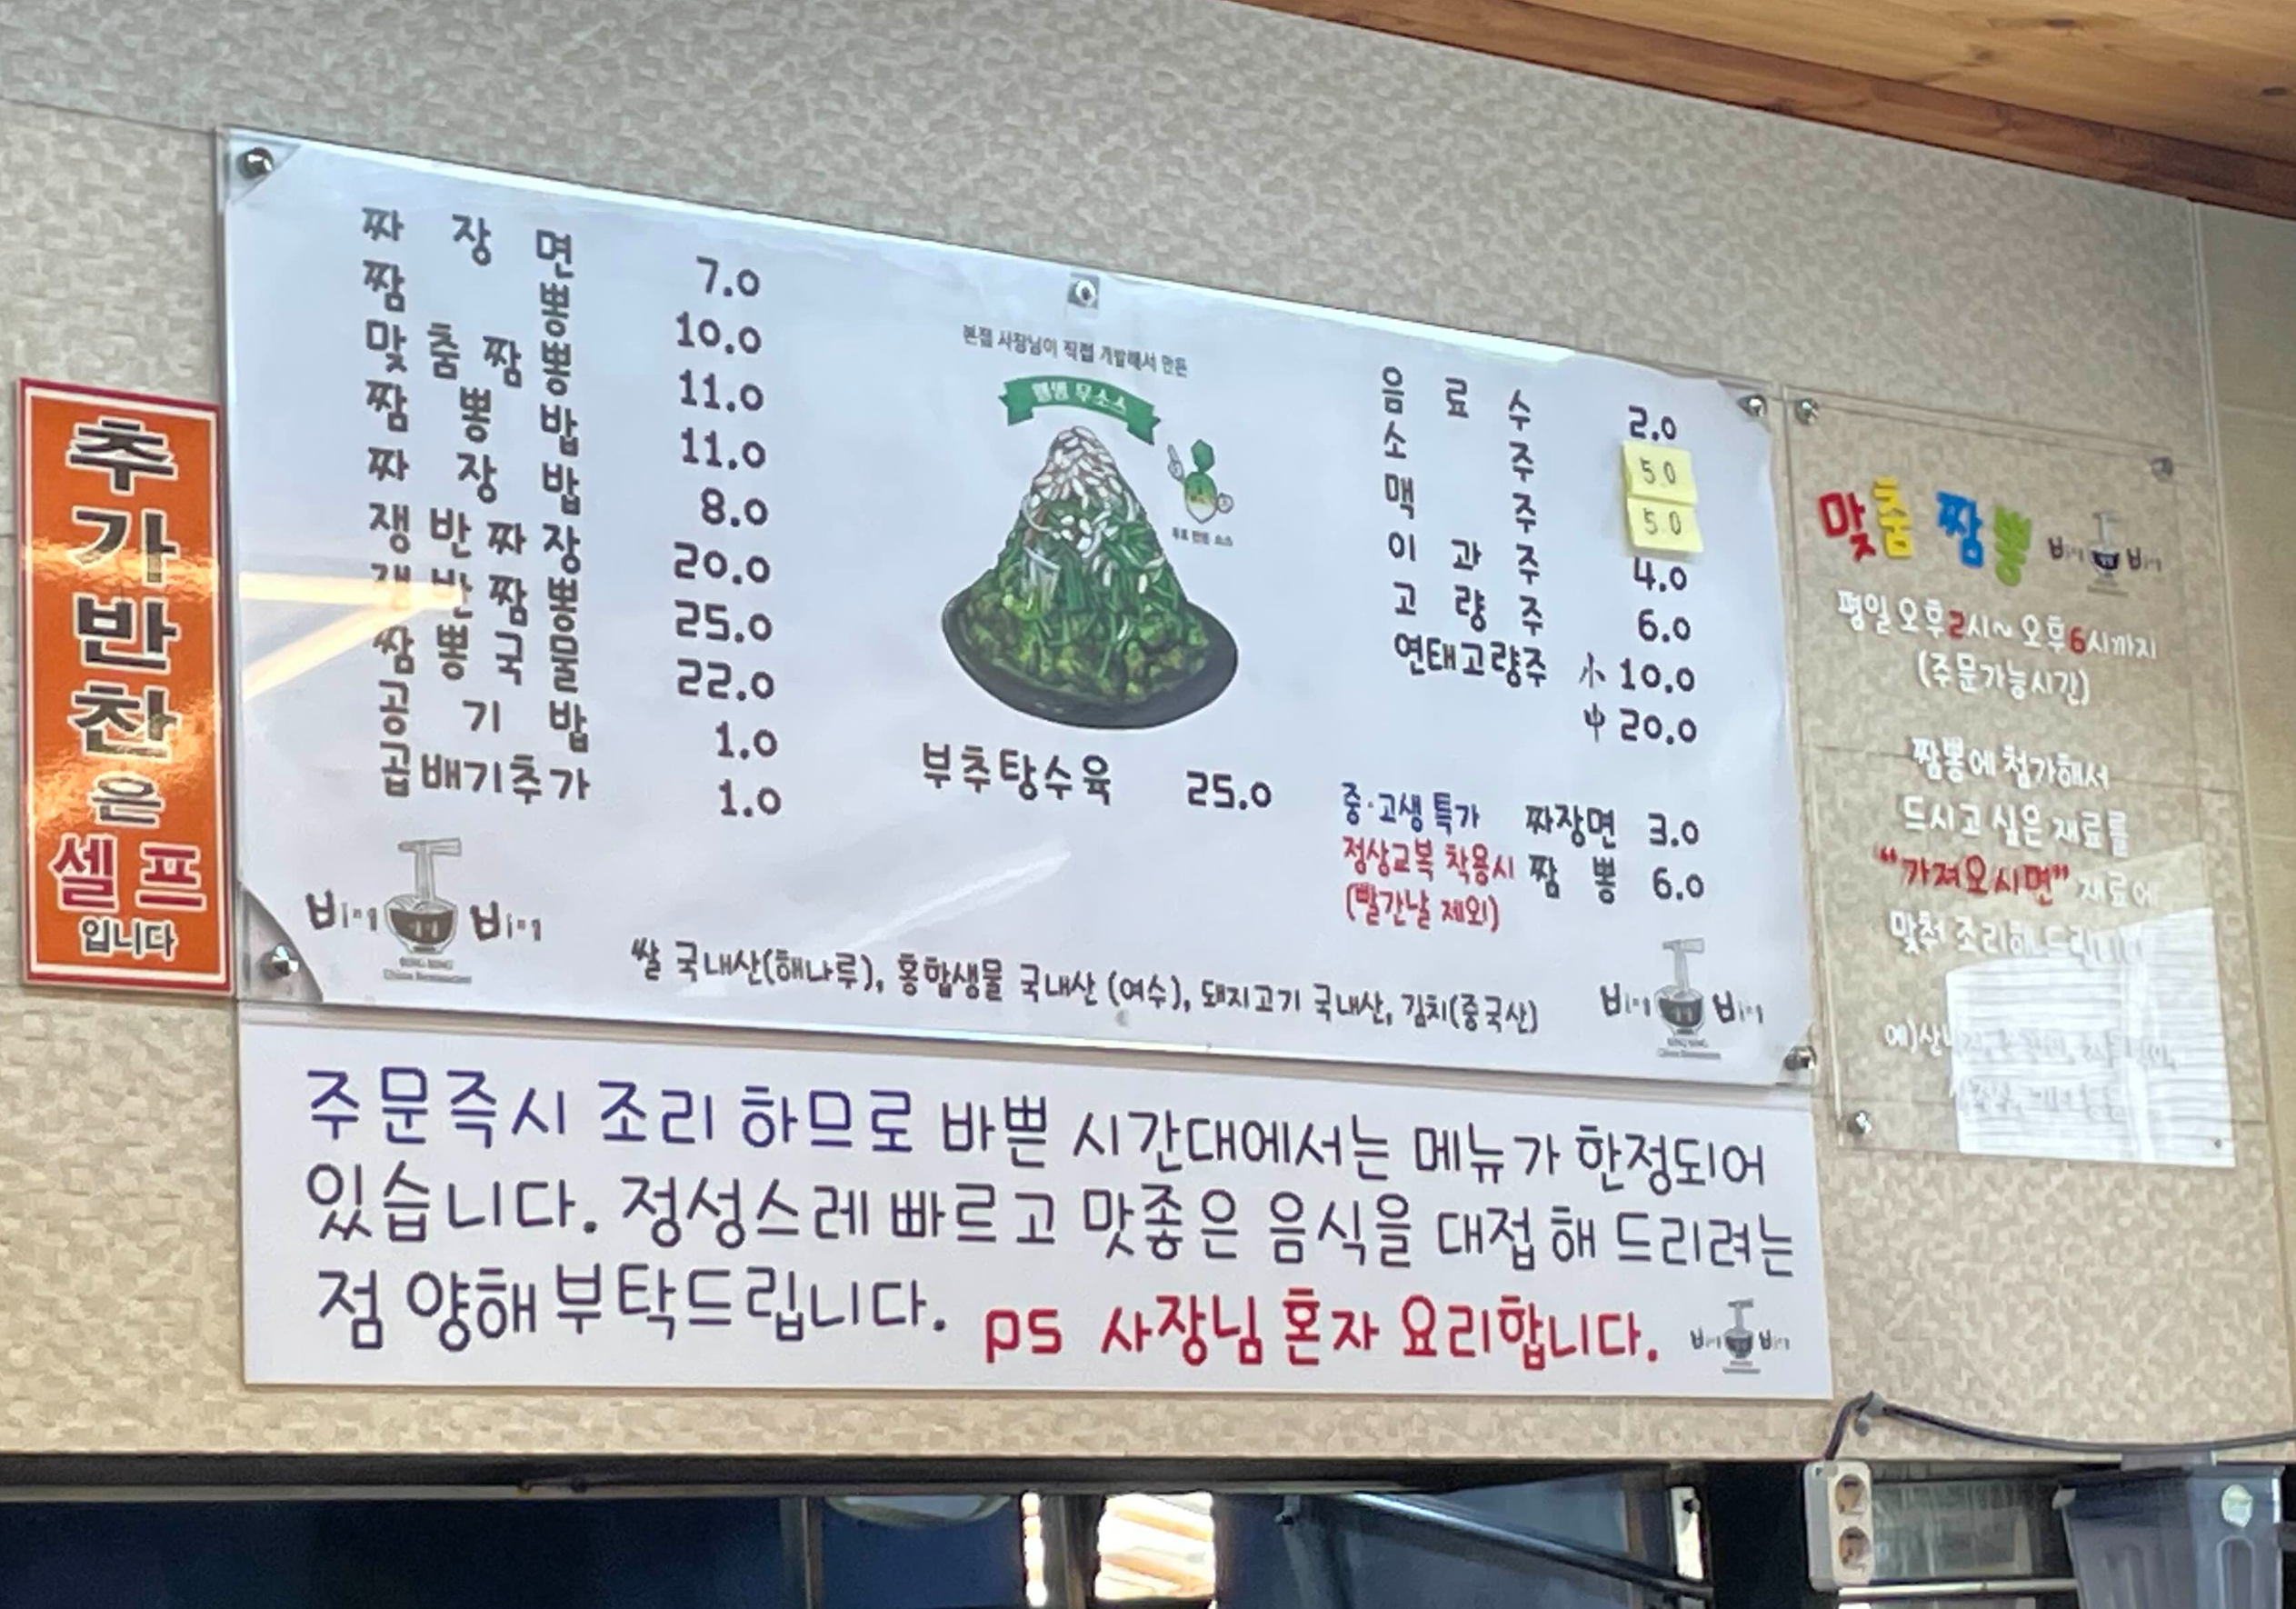 추
가
반
찬
은
셀프
입니다
짜장면 7.0
짬뽕 10.0
맞춤짬뽕 11.0
짬뽕밥 11.0
짜장밥 8.0
쟁반짜장 20.0
쟁반짬뽕 25.0
짬뽕국물 22.0
공기밥 1.0
곱배기추가 1.0
본점 사장님이 직접 개발해서 만든
부추탕수육 25.0
음료수 2.0
소주 5.0
맥주 5.0
이과주 4.0
고량주 6.0
연태고량주 小 10.0
中 20.0
중·고생 특가 짜장면 3.0
정상교복 착용시 짬뽕 6.0
(빨간날 제외)
Bing Bing
쌀 국내산(해나루), 홍합생물 국내산 (여수), 돼지고기 국내산, 김치(중국산)
Bing Bing
주문즉시 조리 하므로 바쁜 시간대에서는 메뉴가 한정되어
있습니다. 정성스레 빠르고 맛좋은 음식을 대접해 드리려는
점 양해 부탁드립니다. ps 사장님 혼자 요리합니다.
Bing Bing
맞춤 짬뽕 Bing Bing
평일 오후2시~오후6시까지
(주문가능시간)
짬뽕에 첨가해서
드시고 싶은 재료를
"가져오시면" 재료에
맞춰 조리해 드립니다